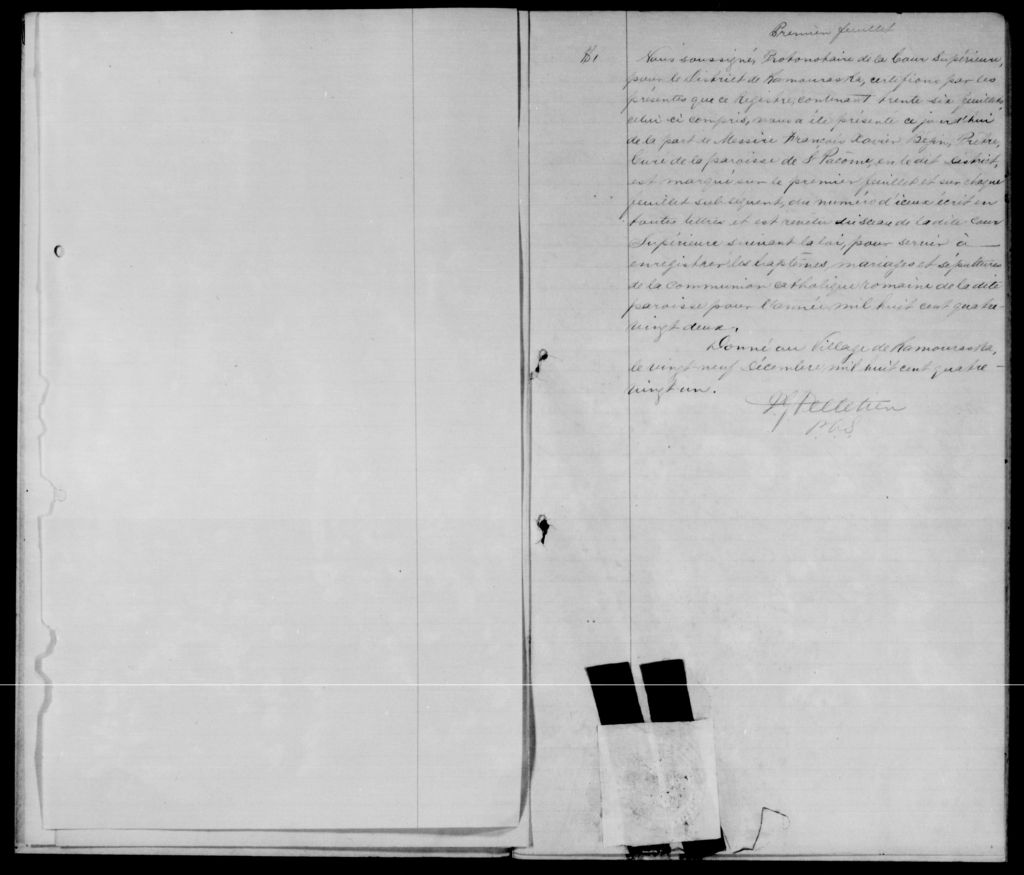 Premier feuillet
Nous soussigné, Protonotaire de la Cour Supérieure,
pour le District de Kamouraska, certifions par les
présentes que ce Registre, contenant trente six feuillets
celui ci compris, nous a été présenté ce jourd'hui
de la part de Messire François Xavier Bégin, Prêtre,
Curé de la paroisse de St Pacôme, en le dit District,
est marqué sur le premier feuillet et sur chaque
feuillet subséquent, du numéro d'iceux écrit en
toutes lettres et est revêtu du sceau de la dite Cour
Supérieure suivant la loi, pour servir à —
enregistrer les baptêmes, mariages et sépultures
de la communion catholique romaine de la dite
paroisse pour l'année mil huit cent quatre-
vingt deux.
Donné au Village de Kamouraska,
le vingt neuf Décembre, mil huit cent quatre-
vingt un.
Pelletier
P.C.S.